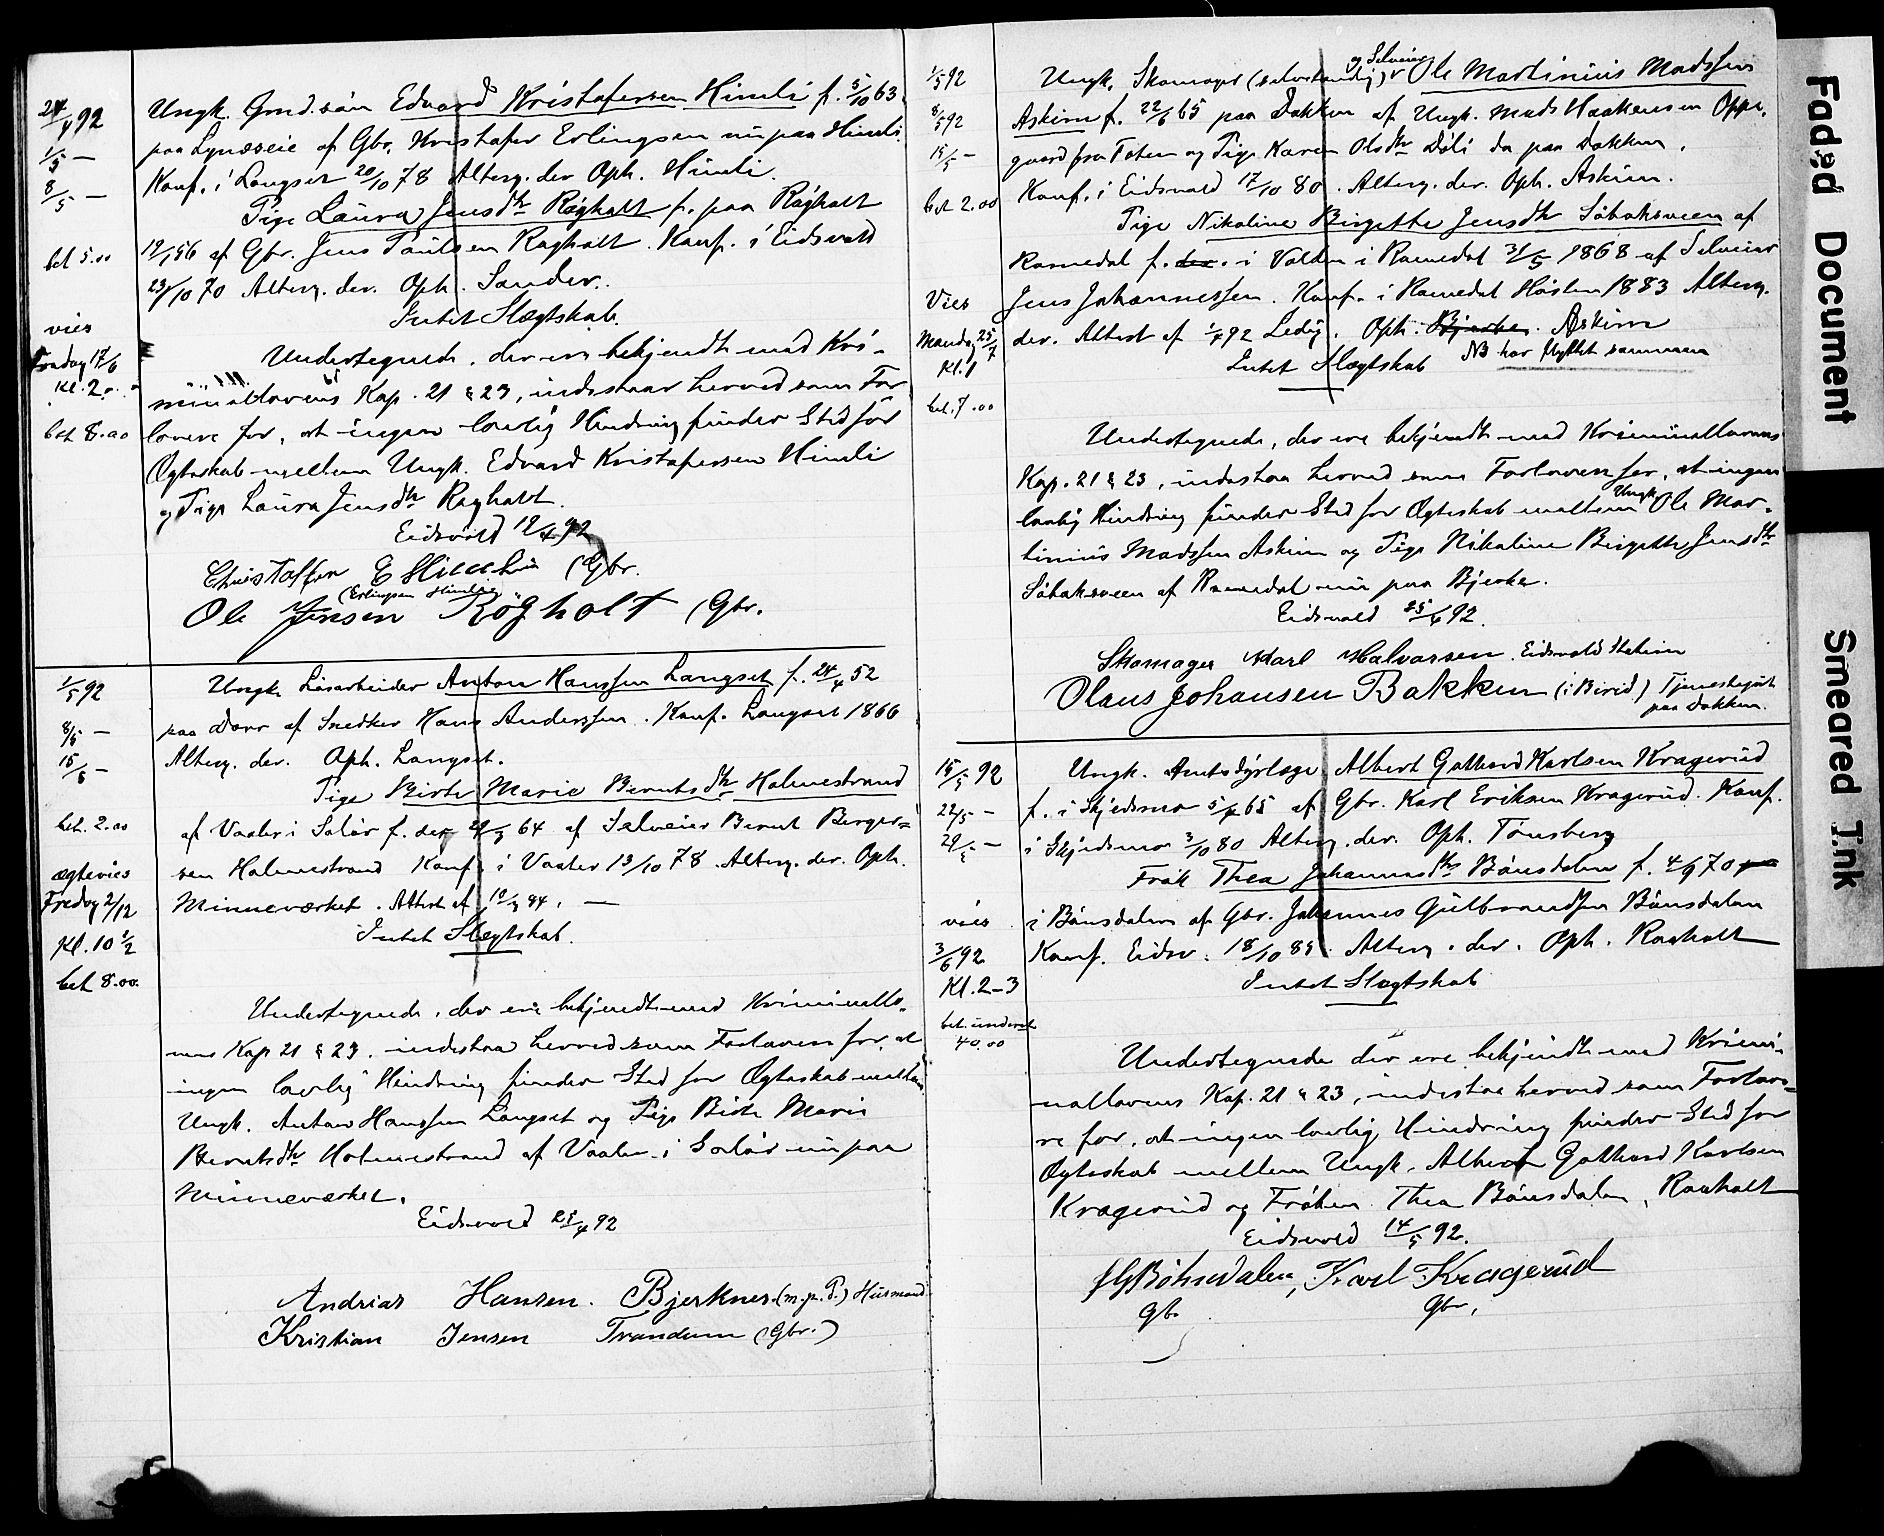 24/4 92
1/5 —
8/5 —
bet 5.00
vies
Fredag 17/6
Kl. 2
bet 8.00
Ungk. Grnd.søn Edvard Kristofersen Himli f. 5/10 63
paa Lynæseie af Gbr. Kristofer Erlingsen nu paa Himli.
Konf. i Langset 20/10 78 Alterg. der Oph. Himli.
Pige Laura Jensdtr Røgholt f. paa Røgholt
af Gbr. Jens Paulsen Røgholt. Konf. i Eidsvold
23/10 70 Alterg. der. Oph. Sander.
Intet Slægtskab.
Undertegnede, der ere bekjendt med Kri-
minallovens Kap. 21 § 23, indestaar herved som For
lovere for, at ingen lovlig Hindring finder Sted for
Ægteskab mellem Ungk. Edvard Kristofersen Himli
og Pige Laura Jensdtr Røgholt.
Eidsvold 19/4 92
Christoffer E Himlie (Gbr.
(Erlingsen Himlie)
Ole Jensen Røgholt (Gbr.
1/5 92
8/5 —
15/5 —
bet. 2.00
ægtevies
Fredag 2/12
Kl. 10 1/2
bet 8.00.
Ungk. Løsarbeider Anton Hanssen Langset f. 24/4 52
paa Dorr af Snedker Hans Anderssen. Konf. Langset 1866
Alterg. der. Oph. Langset.
Pige Birte Marie Berntsdtr Holmestrand
af Vaaler i Solør f. der 64 af Selveier Bernt Berger-
sen Holmestrand Konf. i Vaaler 13/10 78. Alterg. der. Oph.
Minneværket. Attest af 84. —
Intet Slægtskab.
Undertegnede, der ere bekjendt med Kriminallo-
vens Kap 21 § 23. indestaa herved som Forlovere for, at
ingen lovlig Hindring finder Sted for Ægteskab mellem
Ungk. Anton Hanssen Langset og Pige Birte Marie
Berntsdtr Holmestrand af Vaaler i Solør nu paa
Minneværket.
Eidsvold 92
Andrias Hansen. Bjerknes (m.p.P.) Husmand
Kristian Jensen Trandum (Gbr.)
1/5 92
8/5 92
15/5 —
bet 2.00
Vies
Mandag 25/7
Kl. 1
bet. 7.00
og Selveier
Ungk. Skomager (selvstændig) Ole Martinius Madssen
Askim f. 22/6 65 paa Dokken af Ungk. Mads Haakensen Oppe-
gaard fra Toten og Pige Karen Olsdtr Døli da paa Dokken.
Konf. i Eidsvold 17/10 80. Alterg. der. Oph. Askim.
Pige Nikoline Birgette Jensdtr Søbaksveen af
Romedal f. der. i Volden i Romedal 31/5 1868 af Selveier
Jens Johannessen. Konf. i Romedal Høsten 1883 Alterg.
der. Attest af 1/4 92 Ledig. Oph. Bjerke. Askim
Intet Slægtskab NB har flyttet sammen
Undertegnede, der ere bekjendt med Kriminallovens
Kap. 21 § 23, indestaa herved som Forlovere for, at ingen
lovlig Hindring finder Sted for Ægteskab mellem Ungk. Ole Mar-
tinius Madssen Askim og Pige Nikoline Birgette Jensdtr
Søbaksveen af Romedal nu paa Bjerke.
Eidsvold 25/4 92.
Skomager Karl Halvorsen. Eidsvold Station
Olaus Johansen Bakken (i Birid) Tjenestegut
paa Dokken.
15/5 92
22/5 —
29/5 —
vies
3/6 92
Kl. 2-3
40.00
Ungk. Amtsdyrlæge Albert Gotthard Karlsen Kragerud
f. i Skjedsmo 65 af Gbr. Karl Eriksen Kragerud. Konf.
i Skjedsmo 3/10 80 Alterg. der. Oph. Tønsberg
Frøk Thea Johannesdtr Bønsdalen f. 4/9 70
i Bønsdalen af Gbr. Johannes Gulbrandsen Bønsdalen
Konf. Eidsv. 18/10 85. Alterg. der. Oph. Raaholt
Intet Slægtskab
Undertegnede der ere bekjendt med Krimi-
nallovens Kap. 21 § 23, indestaa herved som Forlove-
re for, at ingen lovlig Hindring finder Sted for
Ægteskab mellem Ungk. Albert Gotthard Karlsen
Kragerud og Frøken Thea Bønsdalen, Raaholt
Eidsvold 14/5 92.
JGBøhnsdalen, Karl Kragerud
Gbr. Gbr.
Faded Document
Smeared Ink